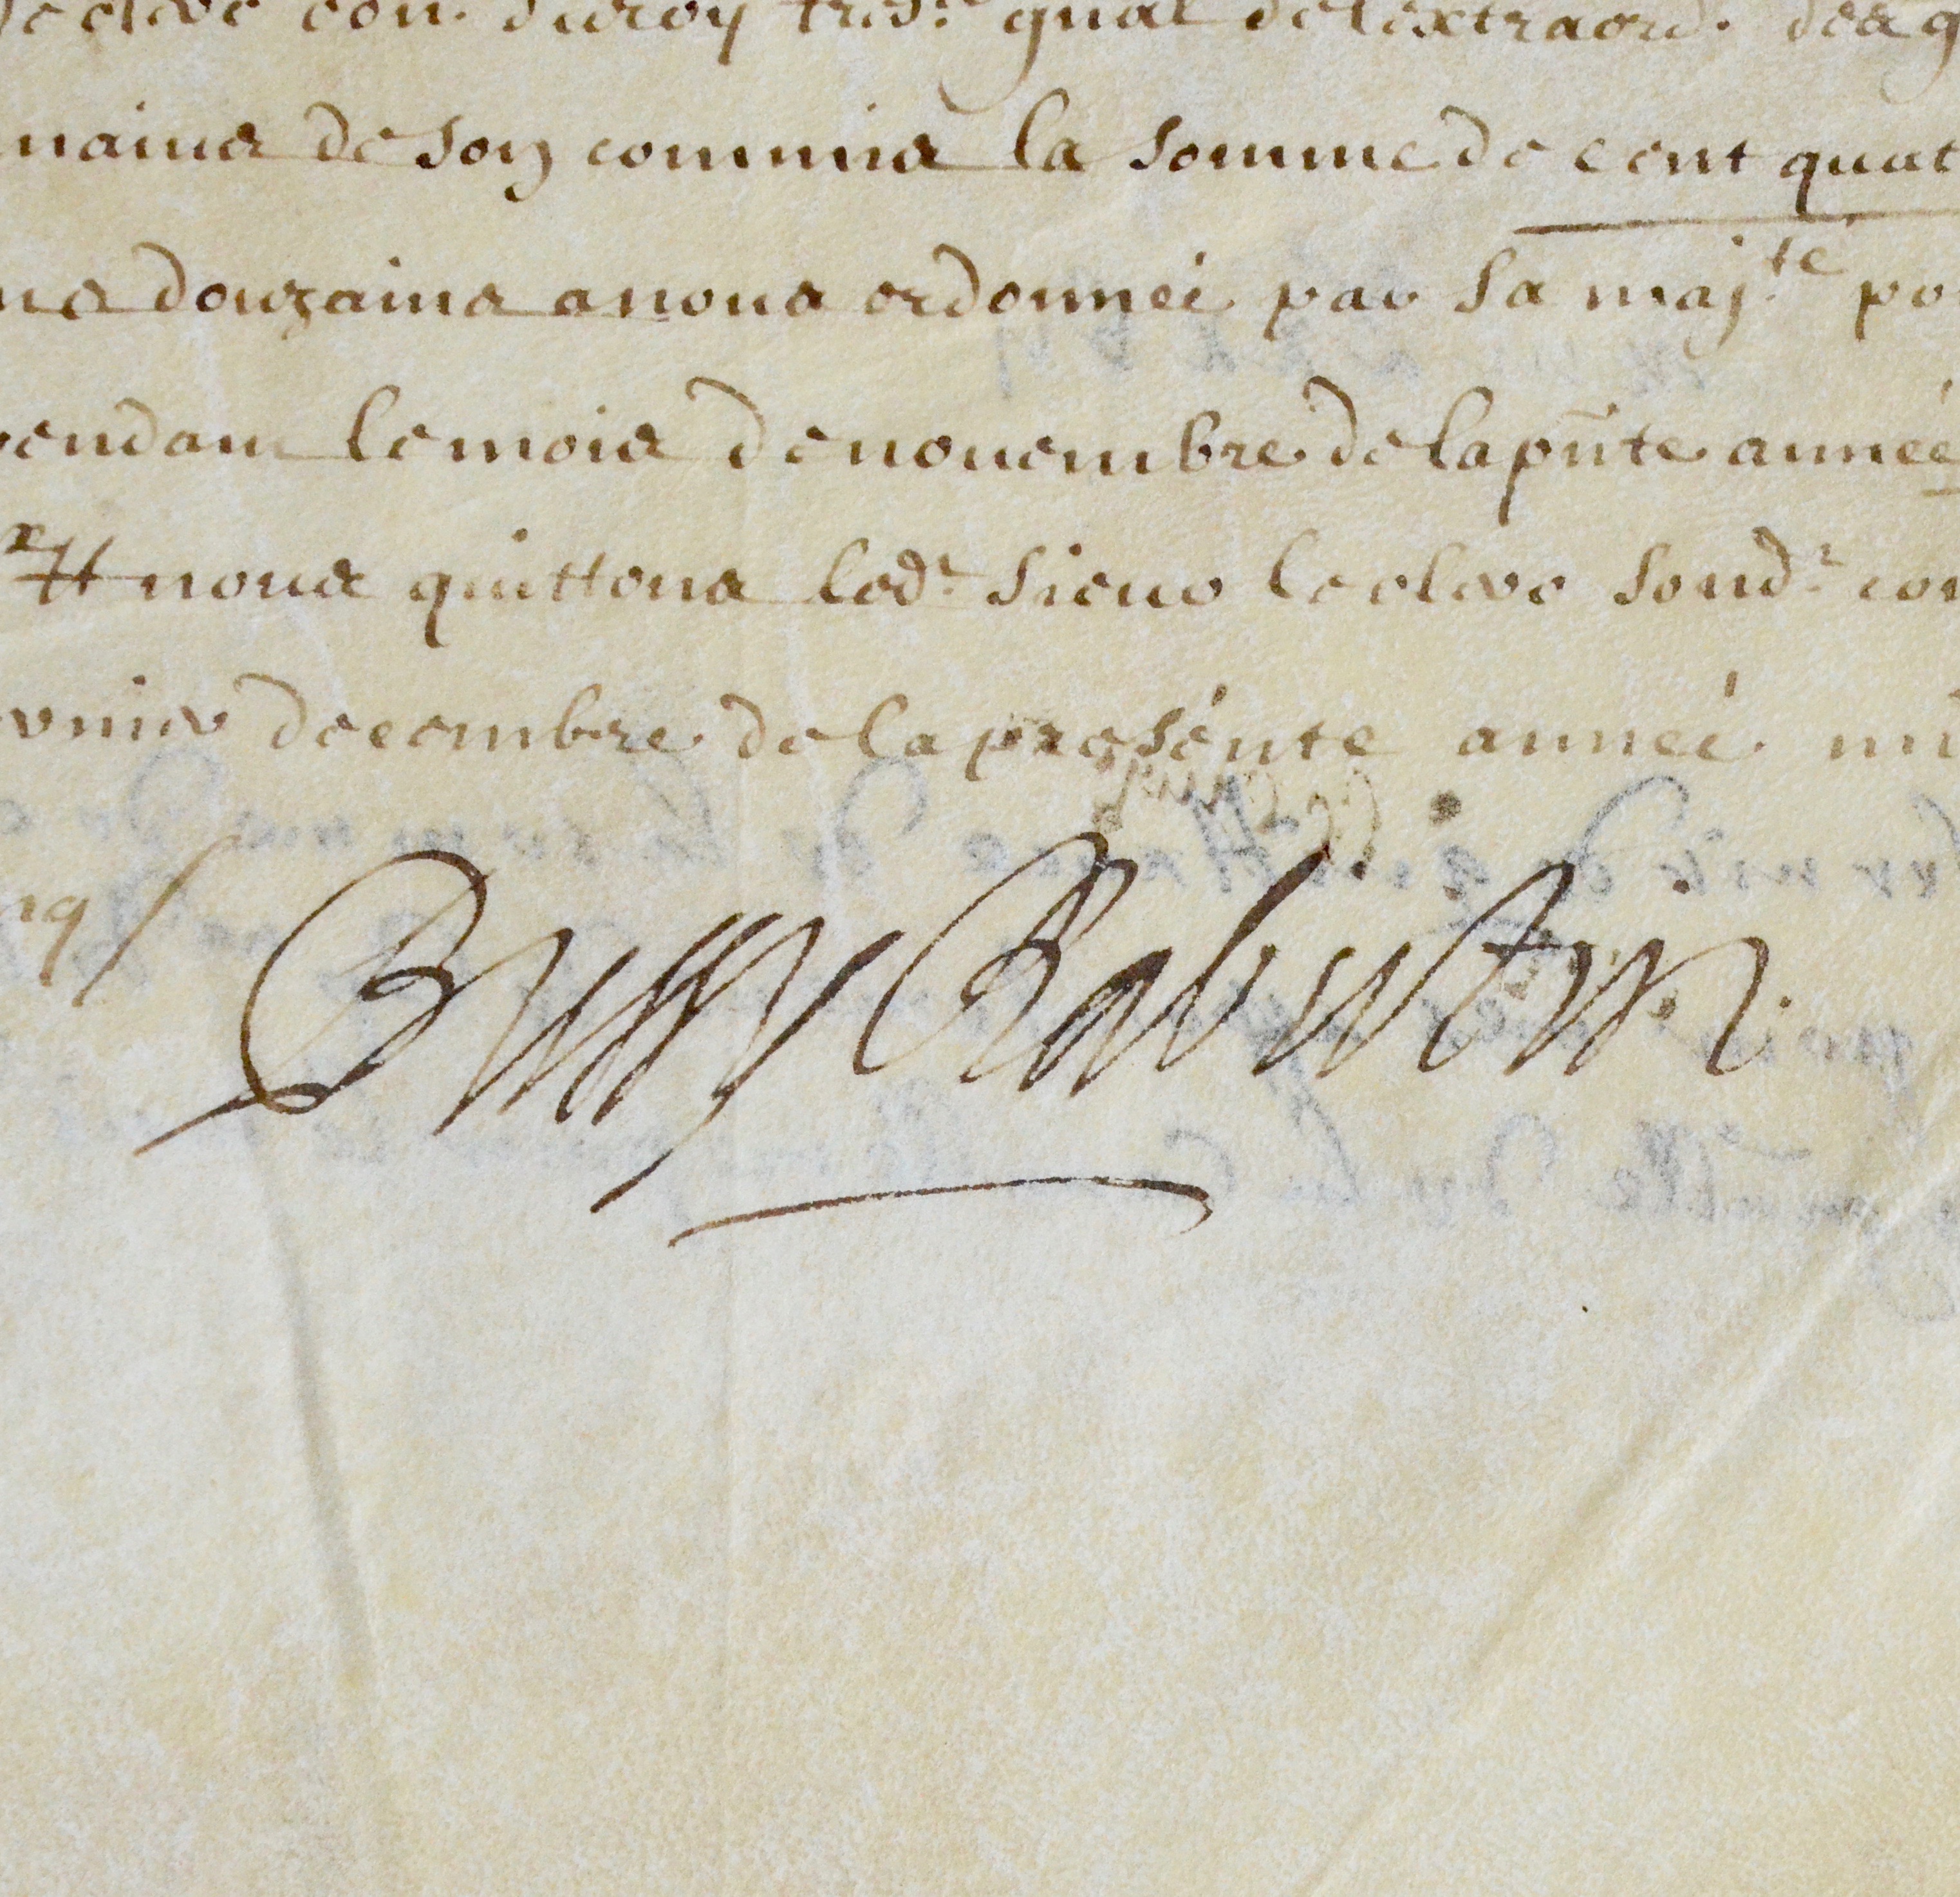 leclerc con. duroy tres.r gnal delextraord. des g
mains de son commis la somme de cent quat
ns douzains a nous ordonneé par sa maj.té po
pendant le mois de nouembre de la pñte anneé
nous quittons led.t sieur leclerc sond.t com
decembre de la presénte anneé mi
Bussy Rabutin